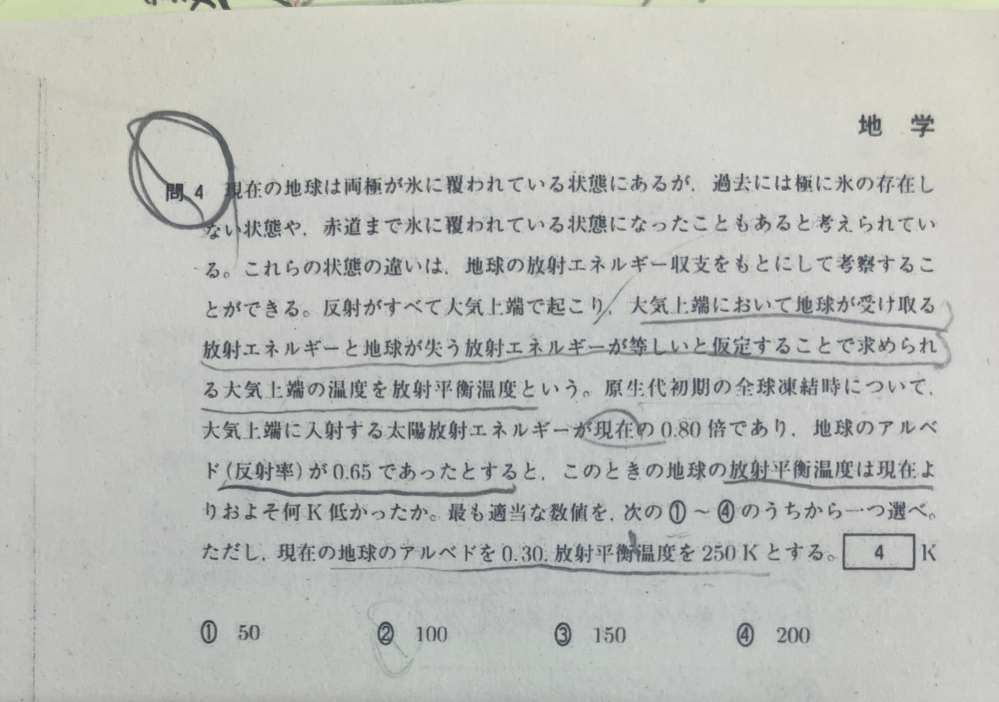 地 学
問4 現在の地球は両極が氷に覆われている状態にあるが，過去には極に氷の存在し
ない状態や，赤道まで氷に覆われている状態になったこともあると考えられてい
る。これらの状態の違いは，地球の放射エネルギー収支をもとにして考察するこ
とができる。反射がすべて大気上端で起こり，大気上端において地球が受け取る
放射エネルギーと地球が失う放射エネルギーが等しいと仮定することで求められ
る大気上端の温度を放射平衡温度という。原生代初期の全球凍結時について，
大気上端に入射する太陽放射エネルギーが現在の0.80倍であり，地球のアルベ
ド(反射率)が0.65であったとすると，このときの地球の放射平衡温度は現在よ
りおよそ何K低かったか。最も適当な数値を，次の①～④のうちから一つ選べ。
ただし，現在の地球のアルベドを0.30，放射平衡温度を250Kとする。 4 K
① 50 ② 100 ③ 150 ④ 200